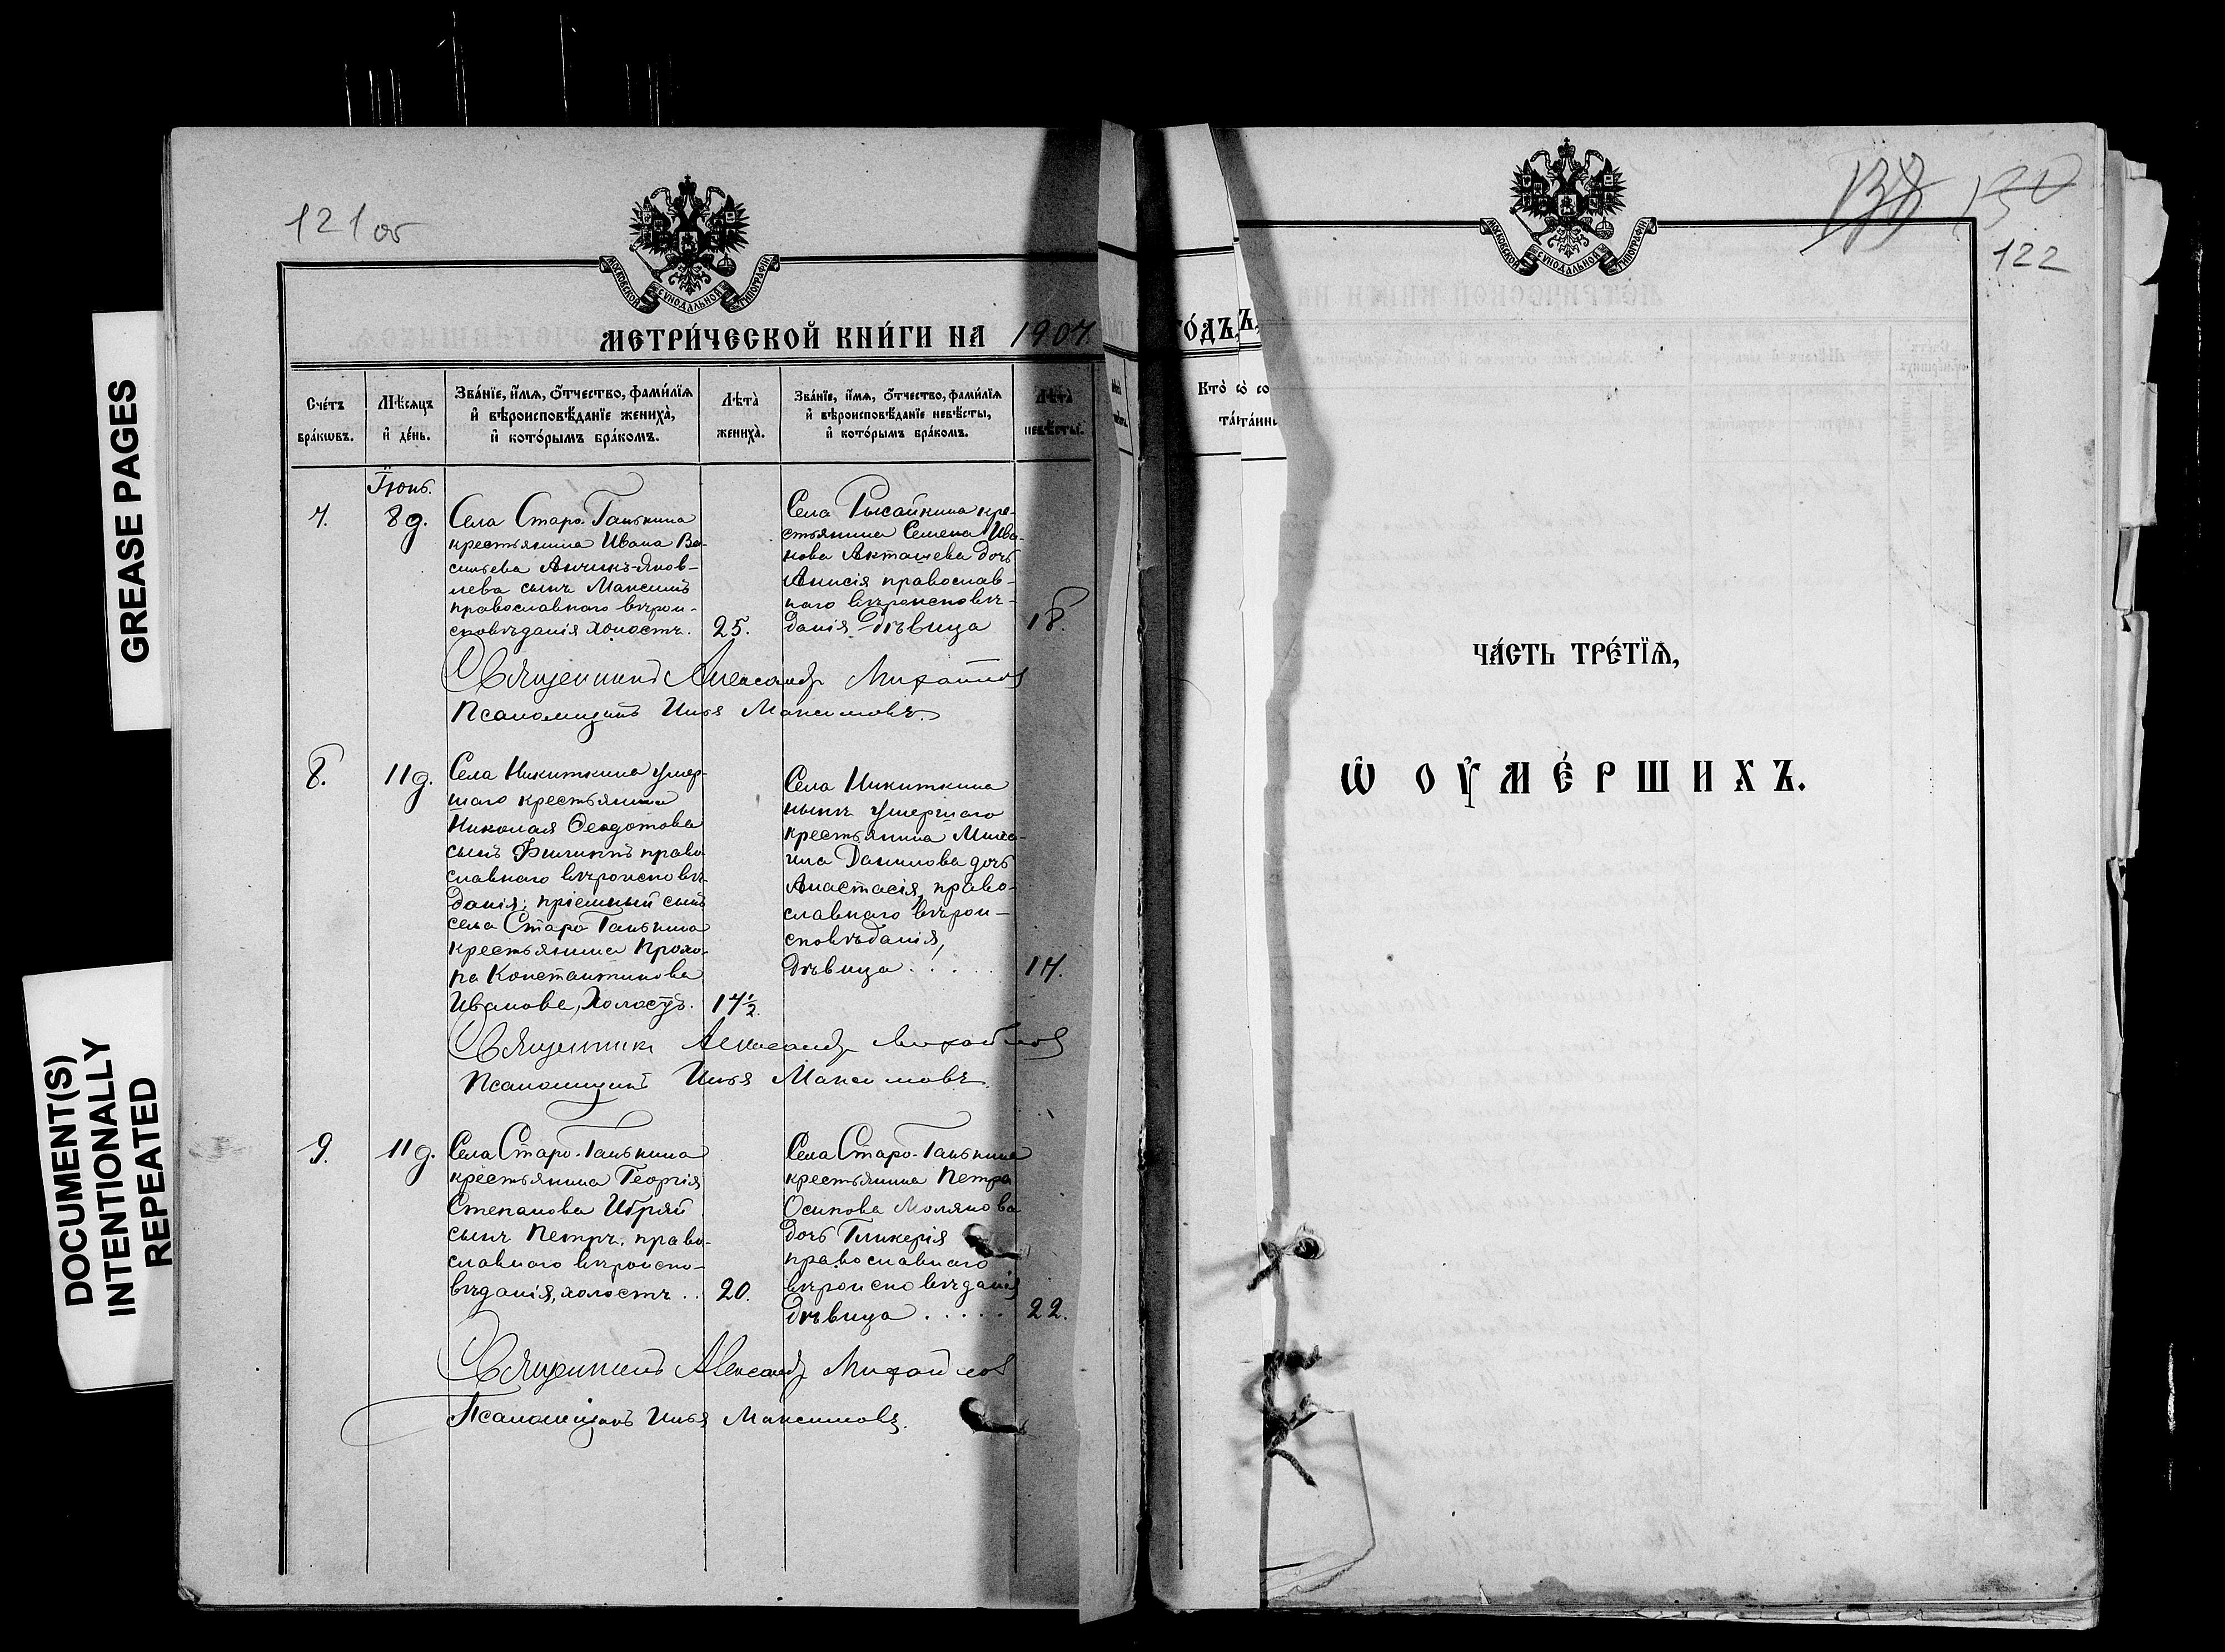 GREASE PAGES
DOCUMENT(S)
INTENTIONALLY
REPEATED
121об
МОСКОВСКОЙ СѴНОДАЛЬНОЙ ТИПОГРАФІИ
МЕТРИ́ЧЕСКОЙ КНИ́ГИ НА 1907
Сче́тъ бра́кѡвъ.
Мѣ́сѧцъ и҆ де́нь.
Зва́нїе, и҆́мѧ, ѻ҆́тчество, фами́лїѧ
и҆ вѣроисповѣ́данїе жениха̀,
и҆ кото́рымъ бра́комъ.
Лѣта̀ жениха̀.
Зва́нїе, и҆́мѧ, ѻ҆́тчество, фами́лїѧ
и҆ вѣроисповѣ́данїе невѣ́сты,
и҆ кото́рымъ бра́комъ.
Лѣта̀ невѣ́сты.
Іюнь.
7.
8 д.
Села Старо-Ганькина
крестьянина Ивана Ва-
сильева Анчикъ-Яков-
лева сынъ Максимъ
православнаго вѣрои-
сповѣданія холостъ.
25.
Села Рысайкина кре-
стьянина Семена Ива-
нова Акташева дочь
Анисія православ-
наго вѣроисповѣ-
данія дѣвица
18.
Священникъ Александръ Михайлов
Псаломщикъ Илья Максимовъ.
8.
11 д.
Села Никиткина умер-
шаго крестьянина
Николая Ѳеодотова
сынъ Филиппъ право-
славнаго вѣроисповѣ-
данія; пріемный сынъ
села Старо Ганькина
крестьянина Прохо-
ра Константинова
Иванова, Холостъ.
17½.
Села Никиткина
нынѣ умершаго
крестьянина Миха-
ила Данилова дочь
Анастасія, право-
славнаго вѣрои-
сповѣданія,
дѣвица . . . .
17.
Священникъ Александръ Михайлов
Псаломщикъ Илья Максимовъ.
9.
11 д.
Села Старо-Ганькина
крестьянина Георгія
Степанова Ибряй
сынъ Петръ, право-
славнаго вѣроиспо-
вѣданія, холостъ . .
20.
Села Старо-Ганькина
крестьянина Петра
Осипова Молякова
дочь Гликерія
православнаго
вѣроисповѣданія
дѣвица . . . . .
22.
Священникъ Александръ Михайлов
Псаломщикъ Илья Максимовъ.
ГО́ДЪ
Кто̀
МОСКОВСКОЙ СѴНОДАЛЬНОЙ ТИПОГРАФІИ
122
ЧА́СТЬ ТРЕ́ТЇѦ,
Ѽ ОУ҆МЕ́РШИХЪ.